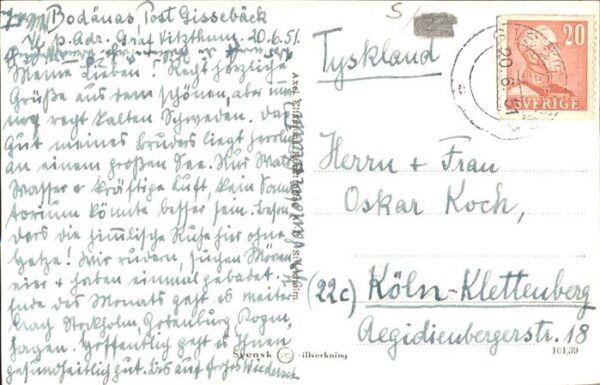 Bodänas, Post Gisseback
p. Adr. Graf Vitzthum. 20.6.51.
Meine Lieben! Recht herzliche
Grüße aus dem schönen, aber
recht kalten Schweden. Das
Gut meines Bruders liegt herrlich
an einem großen See. Nur Wald
Wasser + kräftige Luft, kein Sana-
torium könnte besser sein. Beson-
ders die himmlische Ruhe hir ohne
Hetze! Wir rudern, suchen Möven-
eier + haben einmal gebadet.
Ende des Monats geht es weiter
nach Stockholm, Gotenburg Kopen-
hagen. Hoffentlich geht es Ihnen
gesundheitlich gut. Bis auf frohes Wiedersehen
Tyskland
20
SVERIGE
Herrn + Frau
Oskar Koch,
(22c) Köln-Klettenberg
Aegidienbergerstr. 18
Svensk tillverkning
101,39